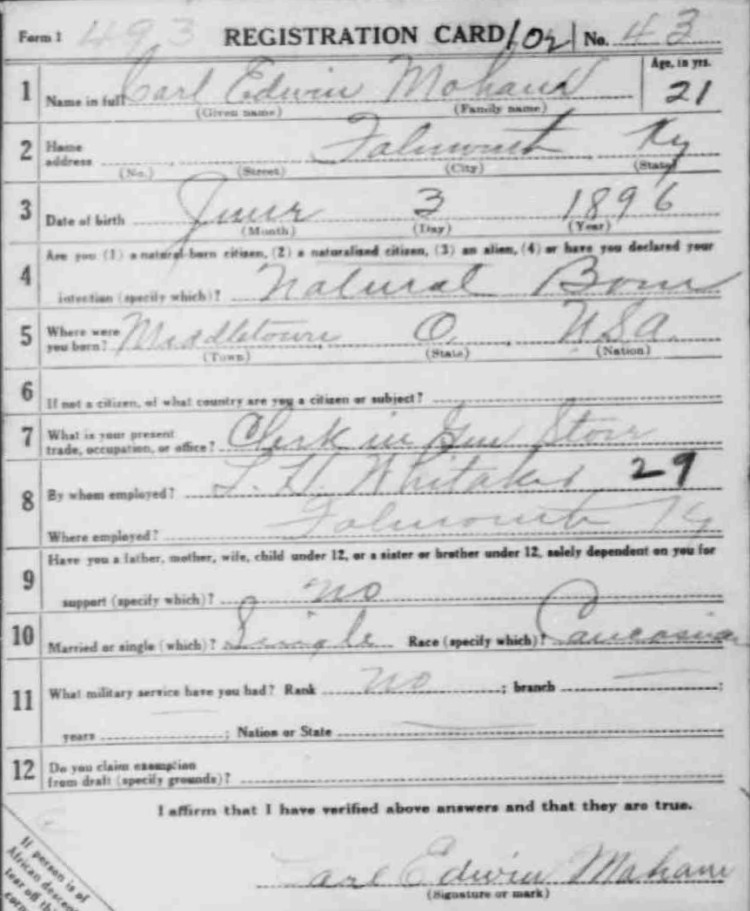 Form 1 493 REGISTRATION CARD 102 No. 43
1 Name in full Carl Edwin Mohaus Age, in yrs. 21
(Given name) (Family name)
2 Home address Falmouth Ky
(No.) (Street) (City) (State)
3 Date of birth June 3 1896
(Month) (Day) (Year)
4 Are you (1) a natural-born citizen, (2) a naturalized citizen, (3) an alien, (4) or have you declared your
intention (specify which)? Natural Born
5 Where were you born? Middletown O. USA
(Town) (State) (Nation)
6 If not a citizen, of what country are you a citizen or subject?
7 What is your present trade, occupation, or office? Clerk in Gen Store
8 By whom employed? L. H. Whitaker 29
Where employed? Falmouth Ky
9 Have you a father, mother, wife, child under 12, or a sister or brother under 12, solely dependent on you for
support (specify which)? no
10 Married or single (which)? Single Race (specify which)? Caucasian
11 What military service have you had? Rank no ; branch ;
years ; Nation or State
12 Do you claim exemption from draft (specify grounds)?
I affirm that I have verified above answers and that they are true.
Carl Edwin Mahan
(Signature or mark)
If person is of
African descent
tear off this
corner